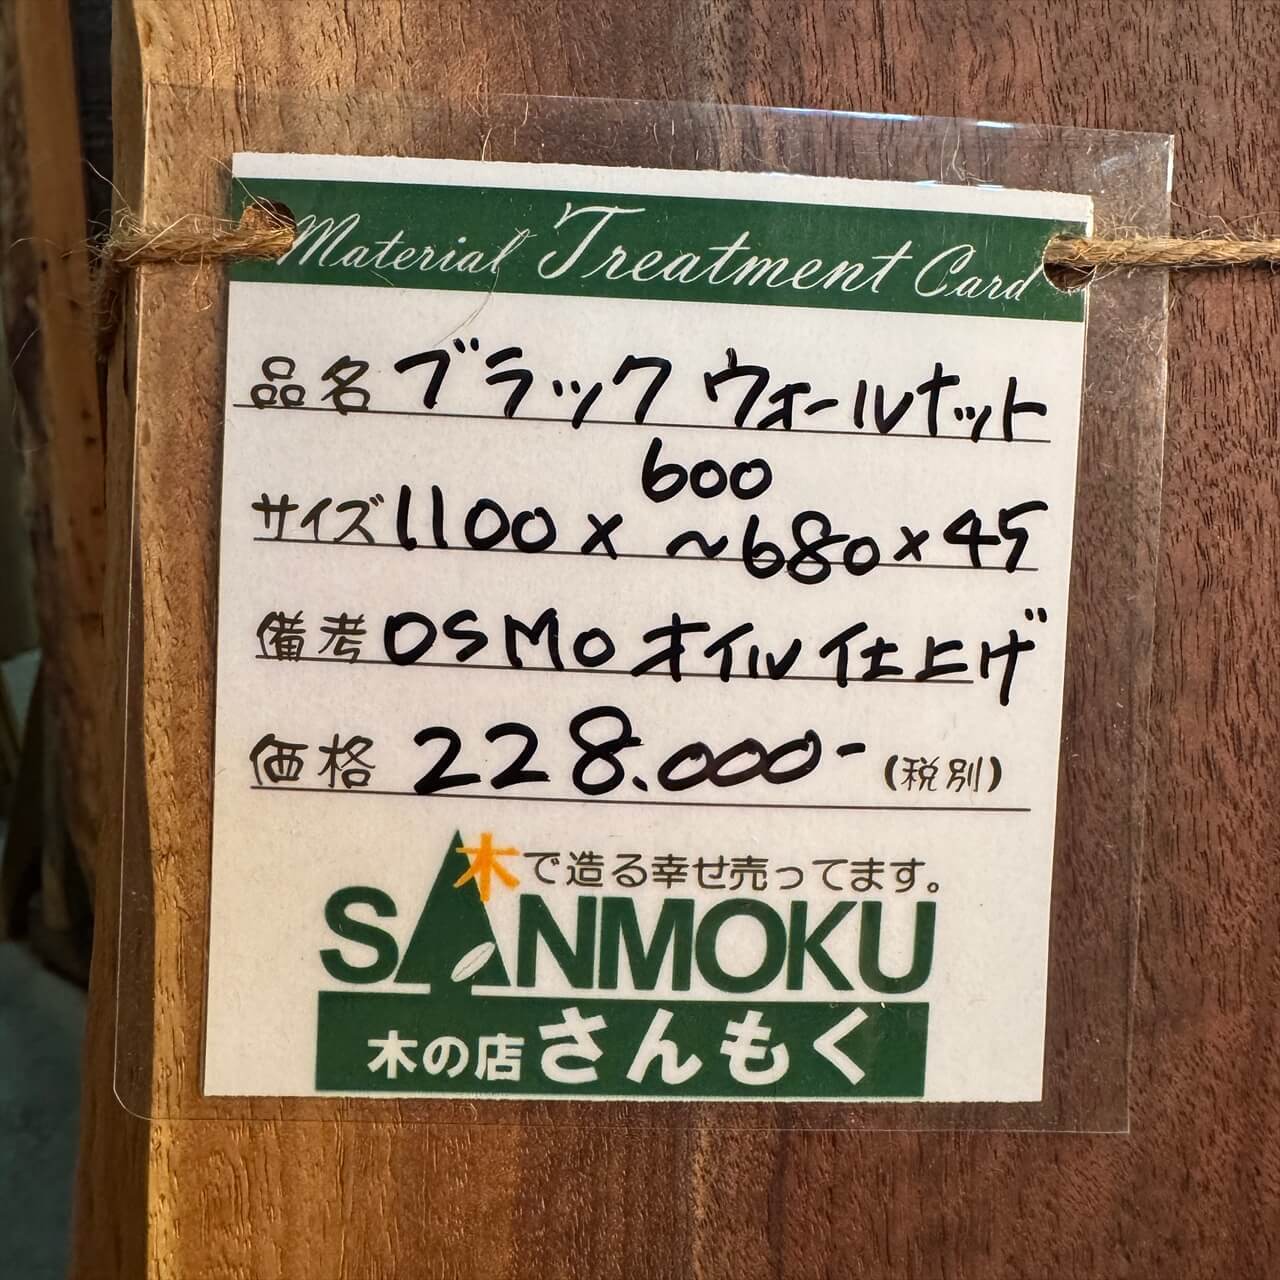 Material Treatment Card
品名 ブラックウォールナット
サイズ 1100 × 600〜680 × 45
備考 OSMOオイル仕上げ
価格 228.000- (税別)
木で造る幸せ売ってます。
SANMOKU
木の店さんもく